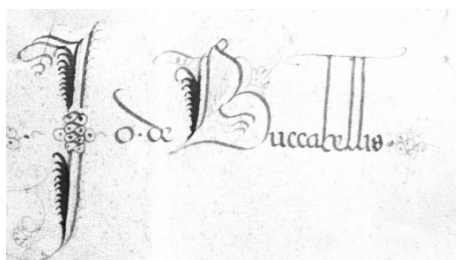 Jo. de Buccabellis.